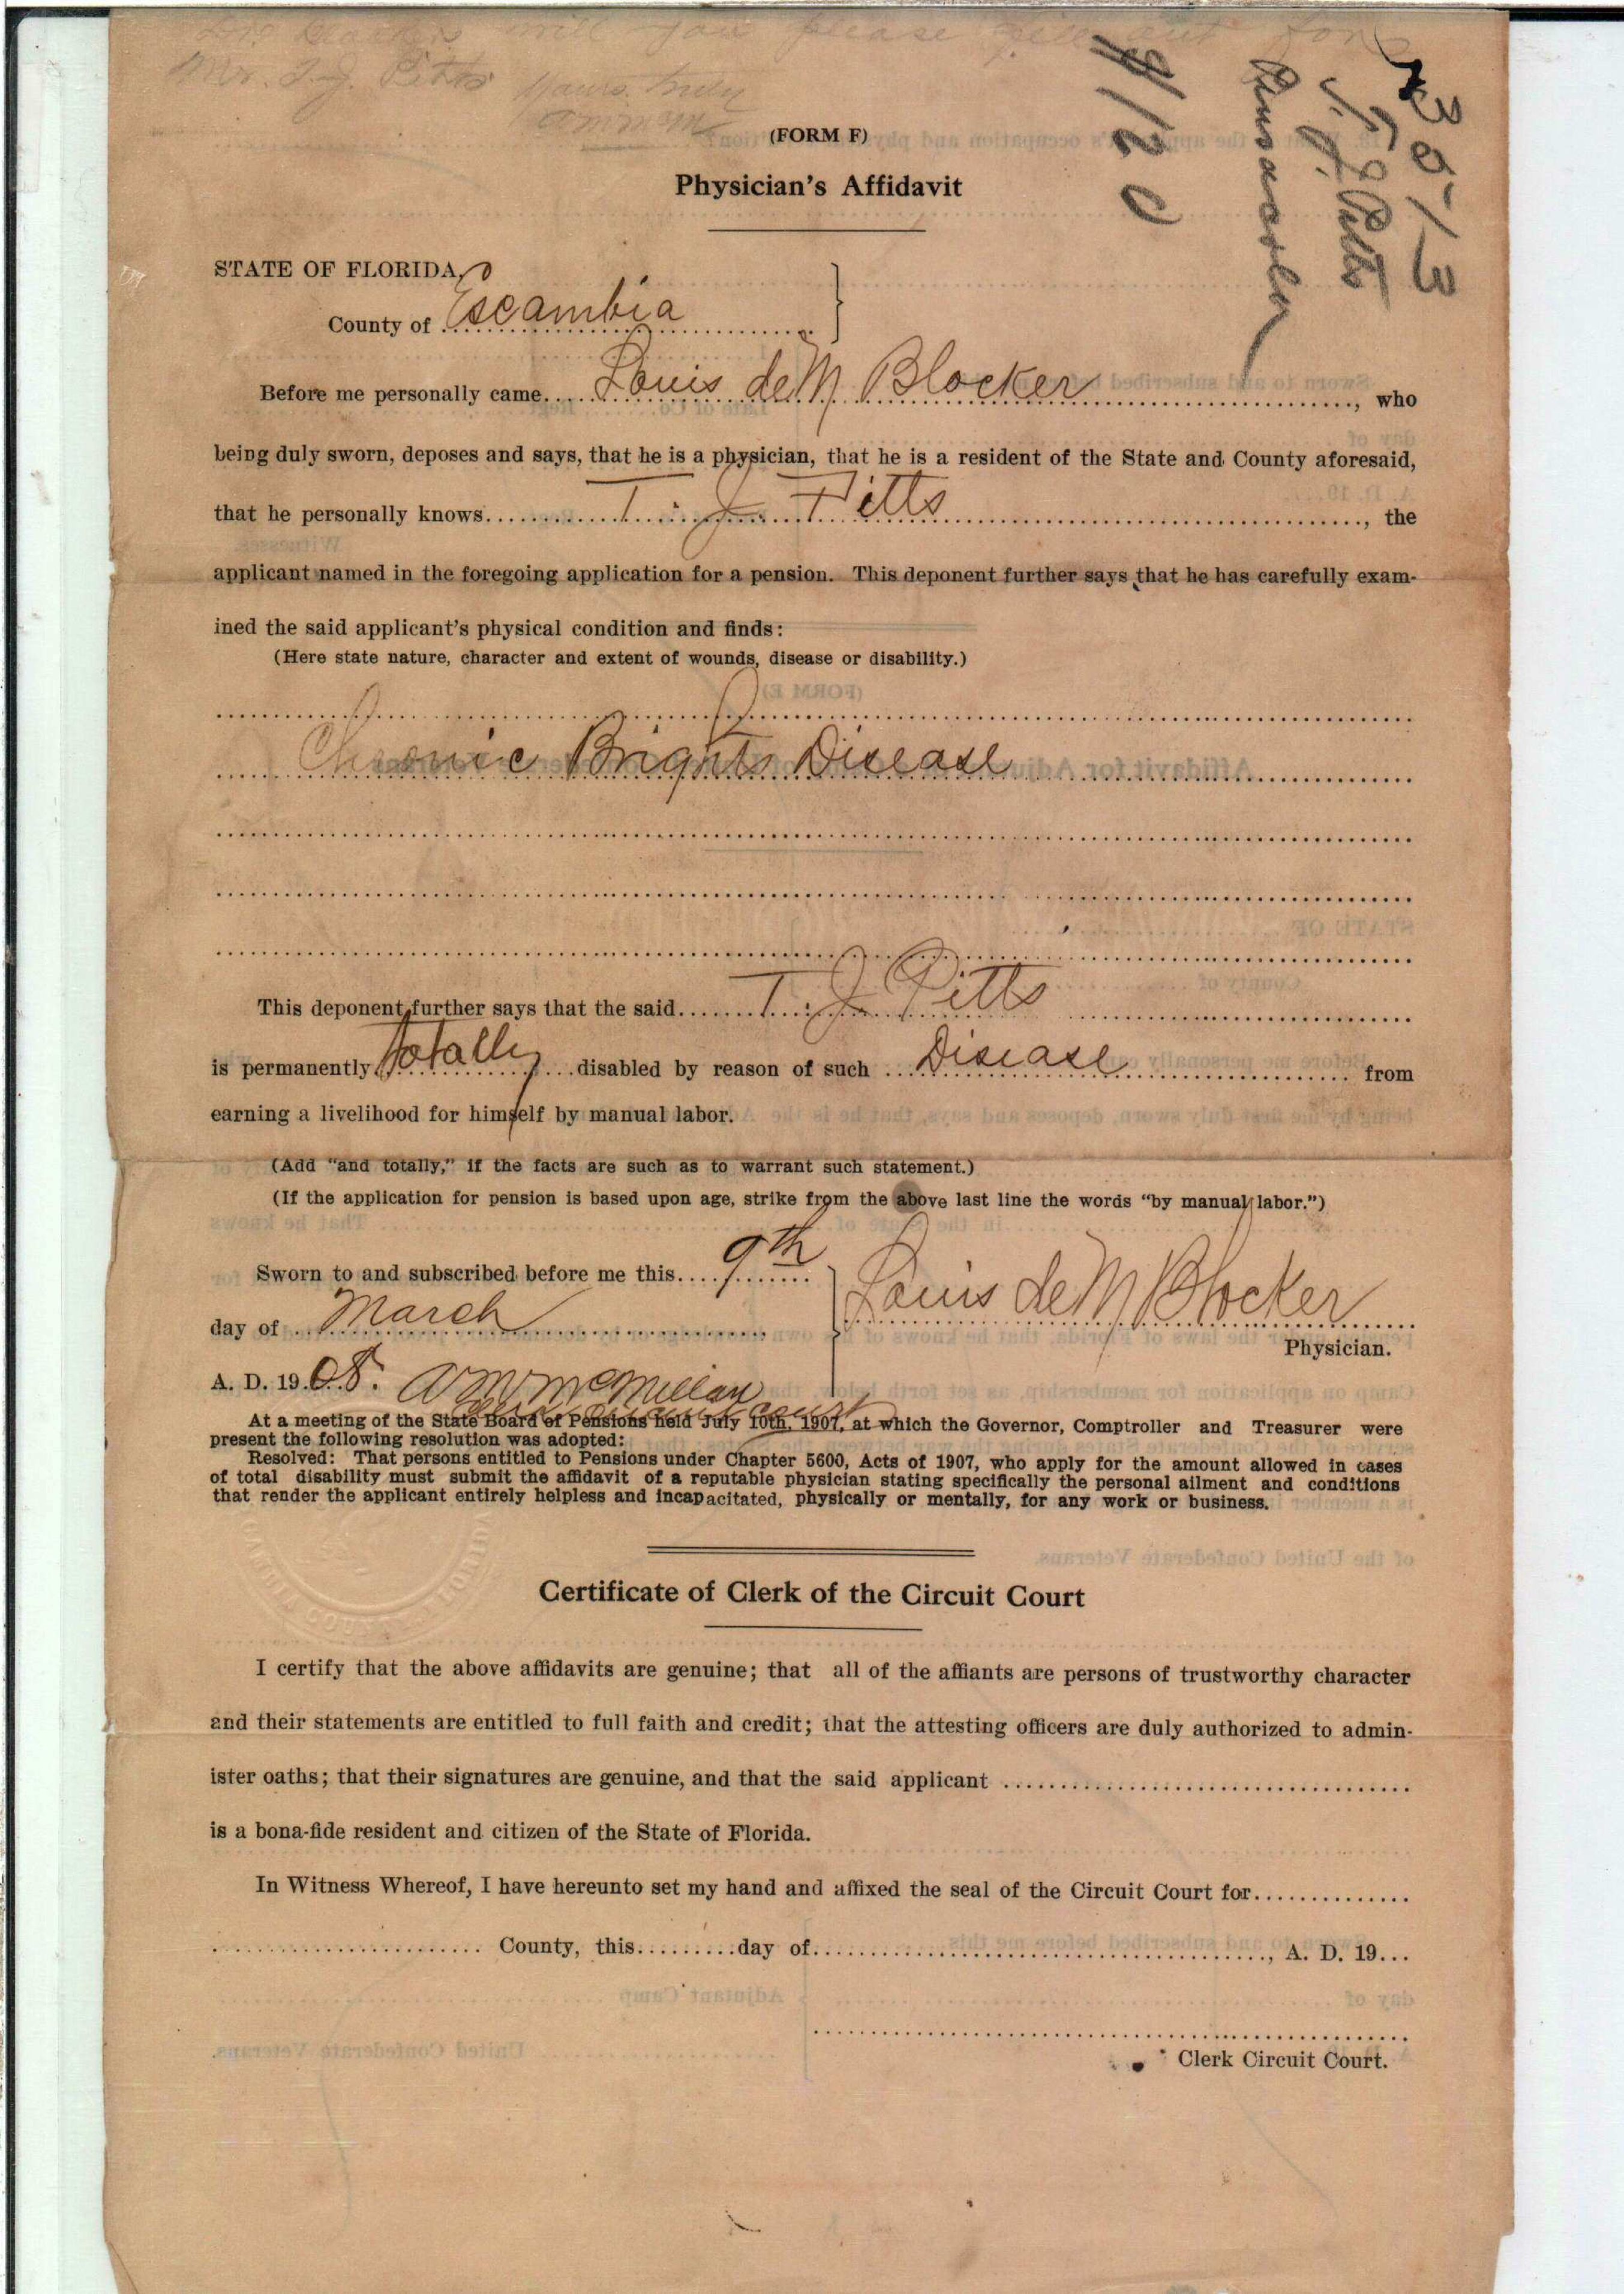 will you please fill out for
Mr. T. J. Pitts
Yours truly
$120
Pensacola
T. J. Pitts
(FORM F)
Physician's Affidavit
STATE OF FLORIDA,
County of Escambia
Before me personally came Louis deM Blocker, who
being duly sworn, deposes and says, that he is a physician, that he is a resident of the State and County aforesaid,
that he personally knows T. J. Pitts, the
applicant named in the foregoing application for a pension. This deponent further says that he has carefully exam-
ined the said applicant's physical condition and finds:
(Here state nature, character and extent of wounds, disease or disability.)
Chronic Brights Disease
This deponent further says that the said T. J. Pitts
is permanently totally disabled by reason of such Disease from
earning a livelihood for himself by manual labor.
(Add "and totally," if the facts are such as to warrant such statement.)
(If the application for pension is based upon age, strike from the above last line the words "by manual labor.")
Sworn to and subscribed before me this 9th
day of March
Louis deM Blocker
Physician.
A. D. 1908. A M McMillan
Clerk Circuit Court
At a meeting of the State Board of Pensions held July 10th, 1907, at which the Governor, Comptroller and Treasurer were
present the following resolution was adopted:
Resolved: That persons entitled to Pensions under Chapter 5600, Acts of 1907, who apply for the amount allowed in cases
of total disability must submit the affidavit of a reputable physician stating specifically the personal ailment and conditions
that render the applicant entirely helpless and incapacitated, physically or mentally, for any work or business.
Certificate of Clerk of the Circuit Court
I certify that the above affidavits are genuine; that all of the affiants are persons of trustworthy character
and their statements are entitled to full faith and credit; that the attesting officers are duly authorized to admin-
ister oaths; that their signatures are genuine, and that the said applicant
is a bona-fide resident and citizen of the State of Florida.
In Witness Whereof, I have hereunto set my hand and affixed the seal of the Circuit Court for
County, this day of, A. D. 19
Clerk Circuit Court.